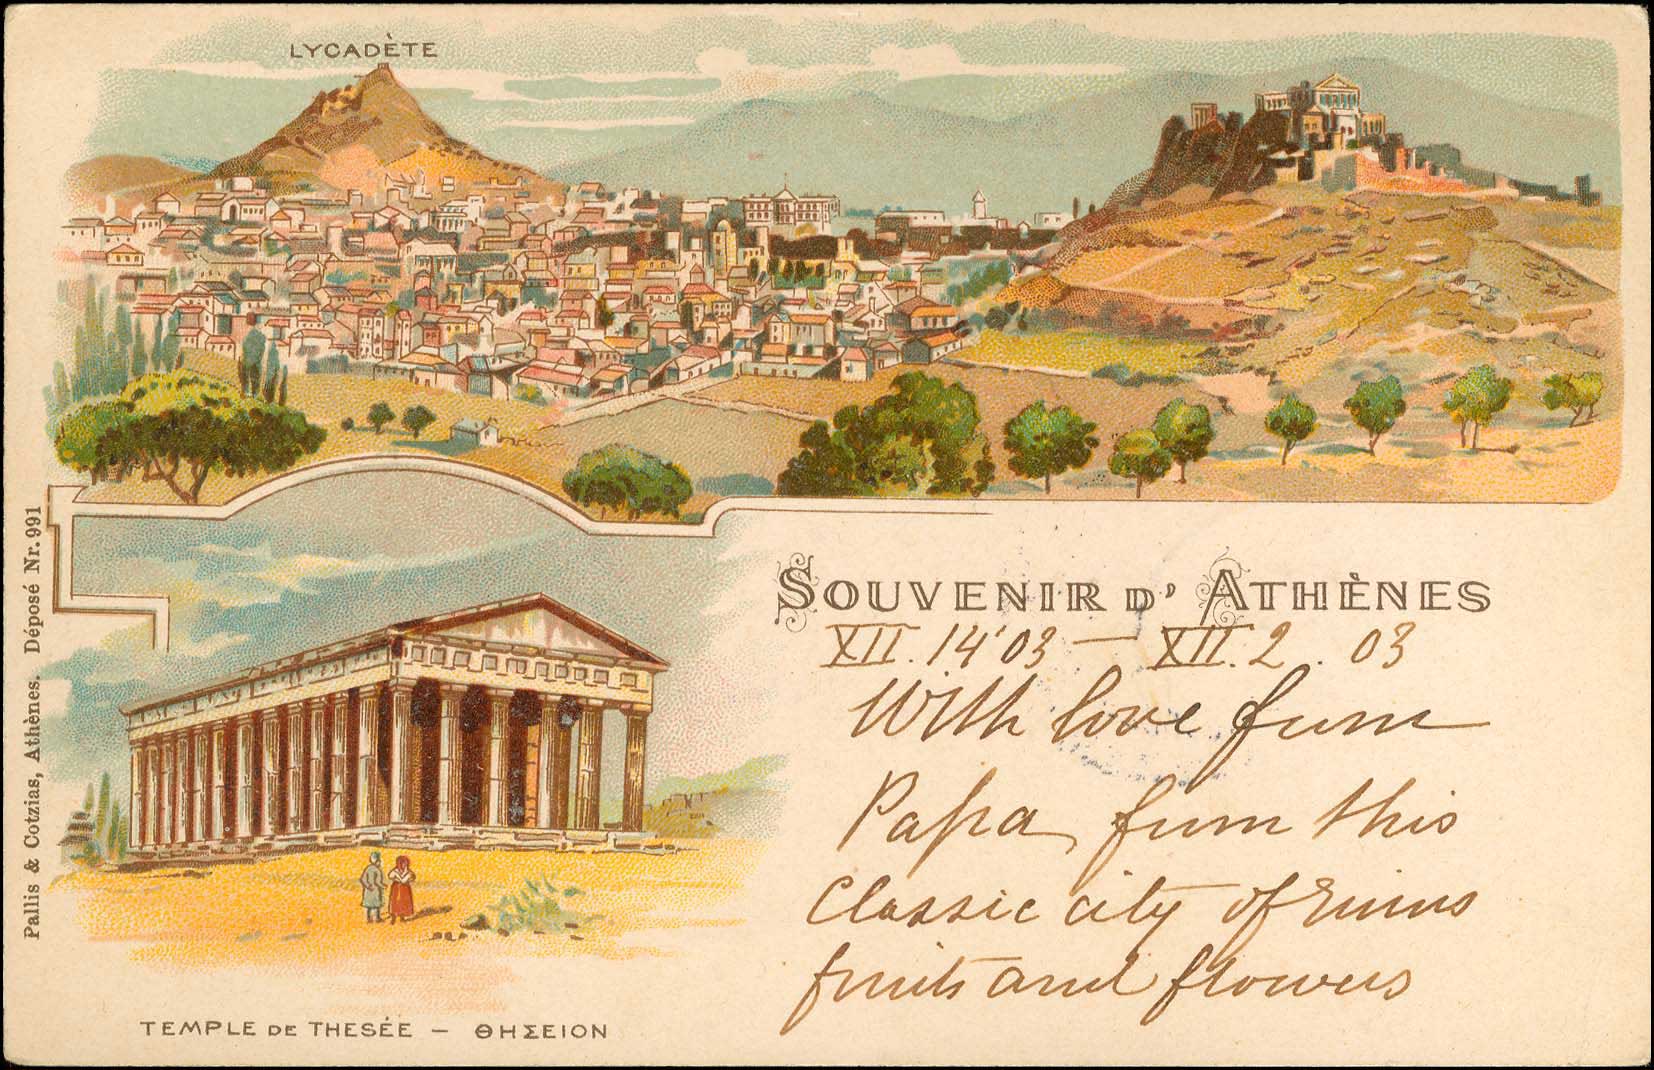 LYCADÈTE
SOUVENIR D' ATHÈNES
XII. 14 03 — XII. 2. 03
With love from
Papa, from this
Classic city of ruins
fruits and flowers
TEMPLE DE THESÉE — ΘΗΣΕΙΟΝ
Pallis & Cotzias, Athènes. Déposé Nr. 991